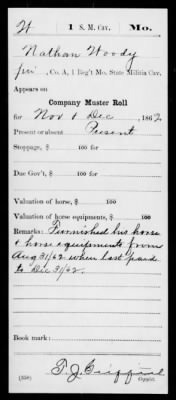 W | 1 S. M. Cav. | Mo.
Nathan Woody
Pri, Co. A, 1 Reg't Mo. State Militia Cav.
Appears on
Company Muster Roll
for Nov & Dec, 1862
Present or absent Present
Stoppage, $ 100 for
Due Gov't, $ 100 for
Valuation of horse, $ 100
Valuation of horse equipments, $ 100
Remarks: Furnished his horse
& horse equipments from
Aug 31/62 when last paid
to Dec 31/62.
Book mark:
(358)
T. J. Griffin
Copyist.